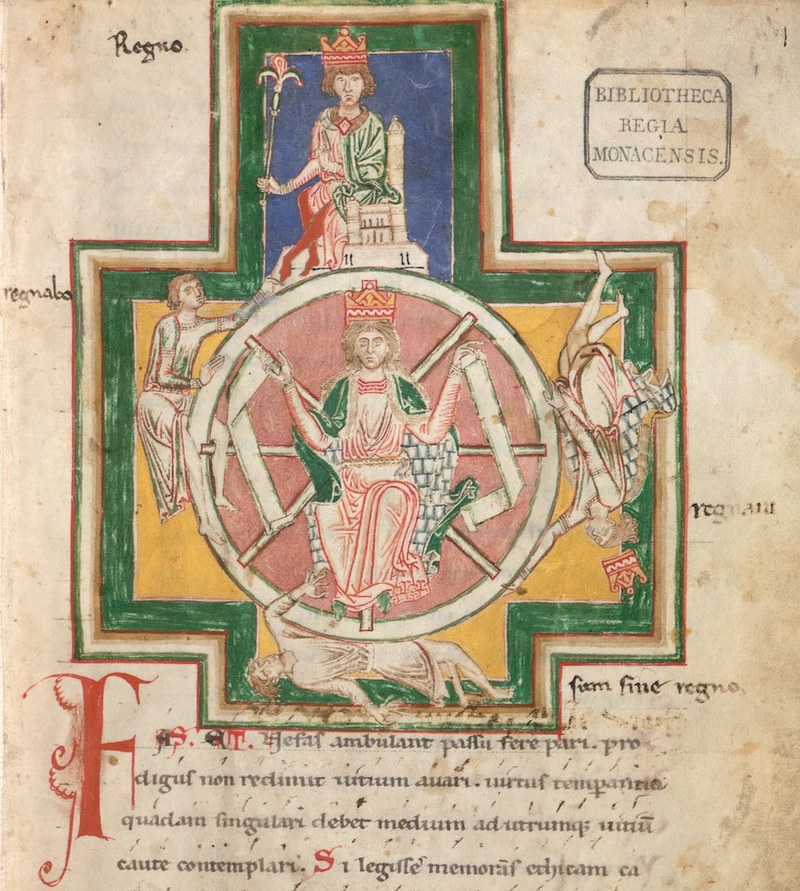 Regno.
BIBLIOTHECA
REGIA
MONACENSIS.
regnabo
regnavi
sum sine regno.
FAS. ET. Nefas ambulant passu fere pari. pro
digus non redimit uitium auari. uirtus temperantia
quadam singulari debet medium ad utrumq; uitiū
caute contemplari. Si legisse memorās ethicam ca